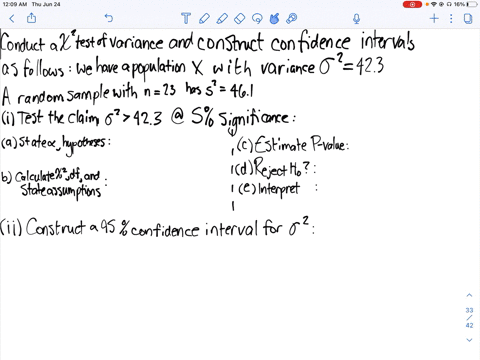 12:09 AM Thu Jun 24
16%
Conduct a χ² test of variance and construct confidence intervals
as follows: we have a population X with variance σ²=42.3
A random sample with n=23 has s²=46.1
(i) Test the claim σ²>42.3 @ 5% significance:
(a) State α, hypotheses:
(c) Estimate P-value:
b) Calculate χ², df, and
State assumptions :
(d) Reject H₀? :
(e) Interpret :
(ii) Construct a 95% confidence interval for σ²:
33
/
42